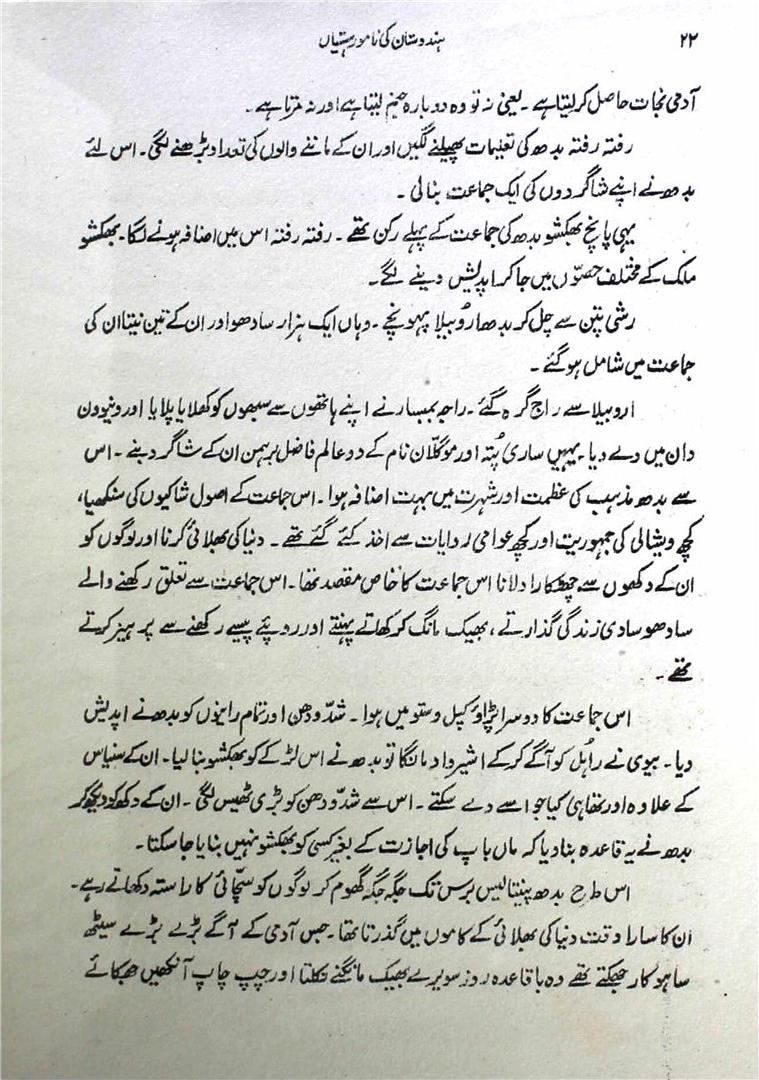 ۲۲
ہندوستان کی نامور ہستیاں
آدمی نجات حاصل کرلیتا ہے ۔ یعنی نہ تو وہ دوبارہ جنم لیتا ہے اور نہ مرتا ہے ۔
رفتہ رفتہ بدھ کی تعلیمات پھیلنے لگیں اور ان کے ماننے والوں کی تعداد بڑھنے لگی ۔ اس لئے
بدھ نے اپنے شاگردوں کی ایک جماعت بنالی ۔
یہی پانچ بھکشو بدھ کی جماعت کے پہلے رکن تھے ۔ رفتہ رفتہ اس میں اضافہ ہونے لگا ۔ بھکشو
ملک کے مختلف حصّوں میں جاکر اپدیش دینے لگے ۔
رشی پتن سے چل کر بدھ اروبیلا پہونچے ۔ وہاں ایک ہزار سادھو اور ان کے تین نیتا ان کی
جماعت میں شامل ہوگئے ۔
اروبیلا سے راج گرہ گئے ۔ راجہ بمبسار نے اپنے ہاتھوں سے سبھوں کو کھلایا پلایا اور ونیودن
دان میں دے دیا ۔ یہیں ساری پُتہ اور موگلّان نام کے دو عالم فاضل برہمن ان کے شاگرد بنے ۔ اس
سے بدھ مذہب کی عظمت اور شہرت میں بہت اضافہ ہوا ۔ اس جماعت کے اصول شاکیوں کی سنکھیا،
کچھ ویشالی کی جمہوریت اور کچھ عوامی روایات سے اخذ کئے گئے تھے ۔ دنیا کی بھلائی کرنا اور لوگوں کو
ان کے دکھوں سے چھٹکارا دلانا اس جماعت کا خاص مقصد تھا ۔ اس جماعت سے تعلق رکھنے والے
سادھو سادی زندگی گذارتے ، بھیک مانگ کر کھاتے پہنتے اور روپئے پیسے رکھنے سے پرہیز کرتے
تھے ۔
اس جماعت کا دوسرا پڑاؤ کپل وستو میں ہوا ۔ شدّودھن اور تمام رانیوں کو بدھ نے اپدیش
دیا ۔ بیوی نے راہُل کو آگے کرکے اشیرواد مانگا تو بدھ نے اس لڑکے کو بھکشو بنالیا ۔ ان کے سنیاس
کے علاوہ اور تھا ہی کیا جو اسے دے سکتے ۔ اس سے شدّودھن کو بڑی ٹھیس لگی ۔ ان کے دکھ کو دیکھ کر
بدھ نے یہ قاعدہ بنادیا کہ ماں باپ کی اجازت کے بغیر کسی کو بھکشو نہیں بنایا جاسکتا ۔
اس طرح بدھ پینتالیس برس تک جگہ جگہ گھوم کر لوگوں کو سچّائی کا راستہ دکھاتے رہے ۔
ان کا سارا وقت دنیا کی بھلائی کے کاموں میں گذرتا تھا ۔ جس آدمی کے آگے بڑے بڑے سیٹھ
ساہوکار جھکتے تھے وہ باقاعدہ روز سویرے بھیک مانگنے نکلتا اور چپ چاپ آنکھیں جھکائے